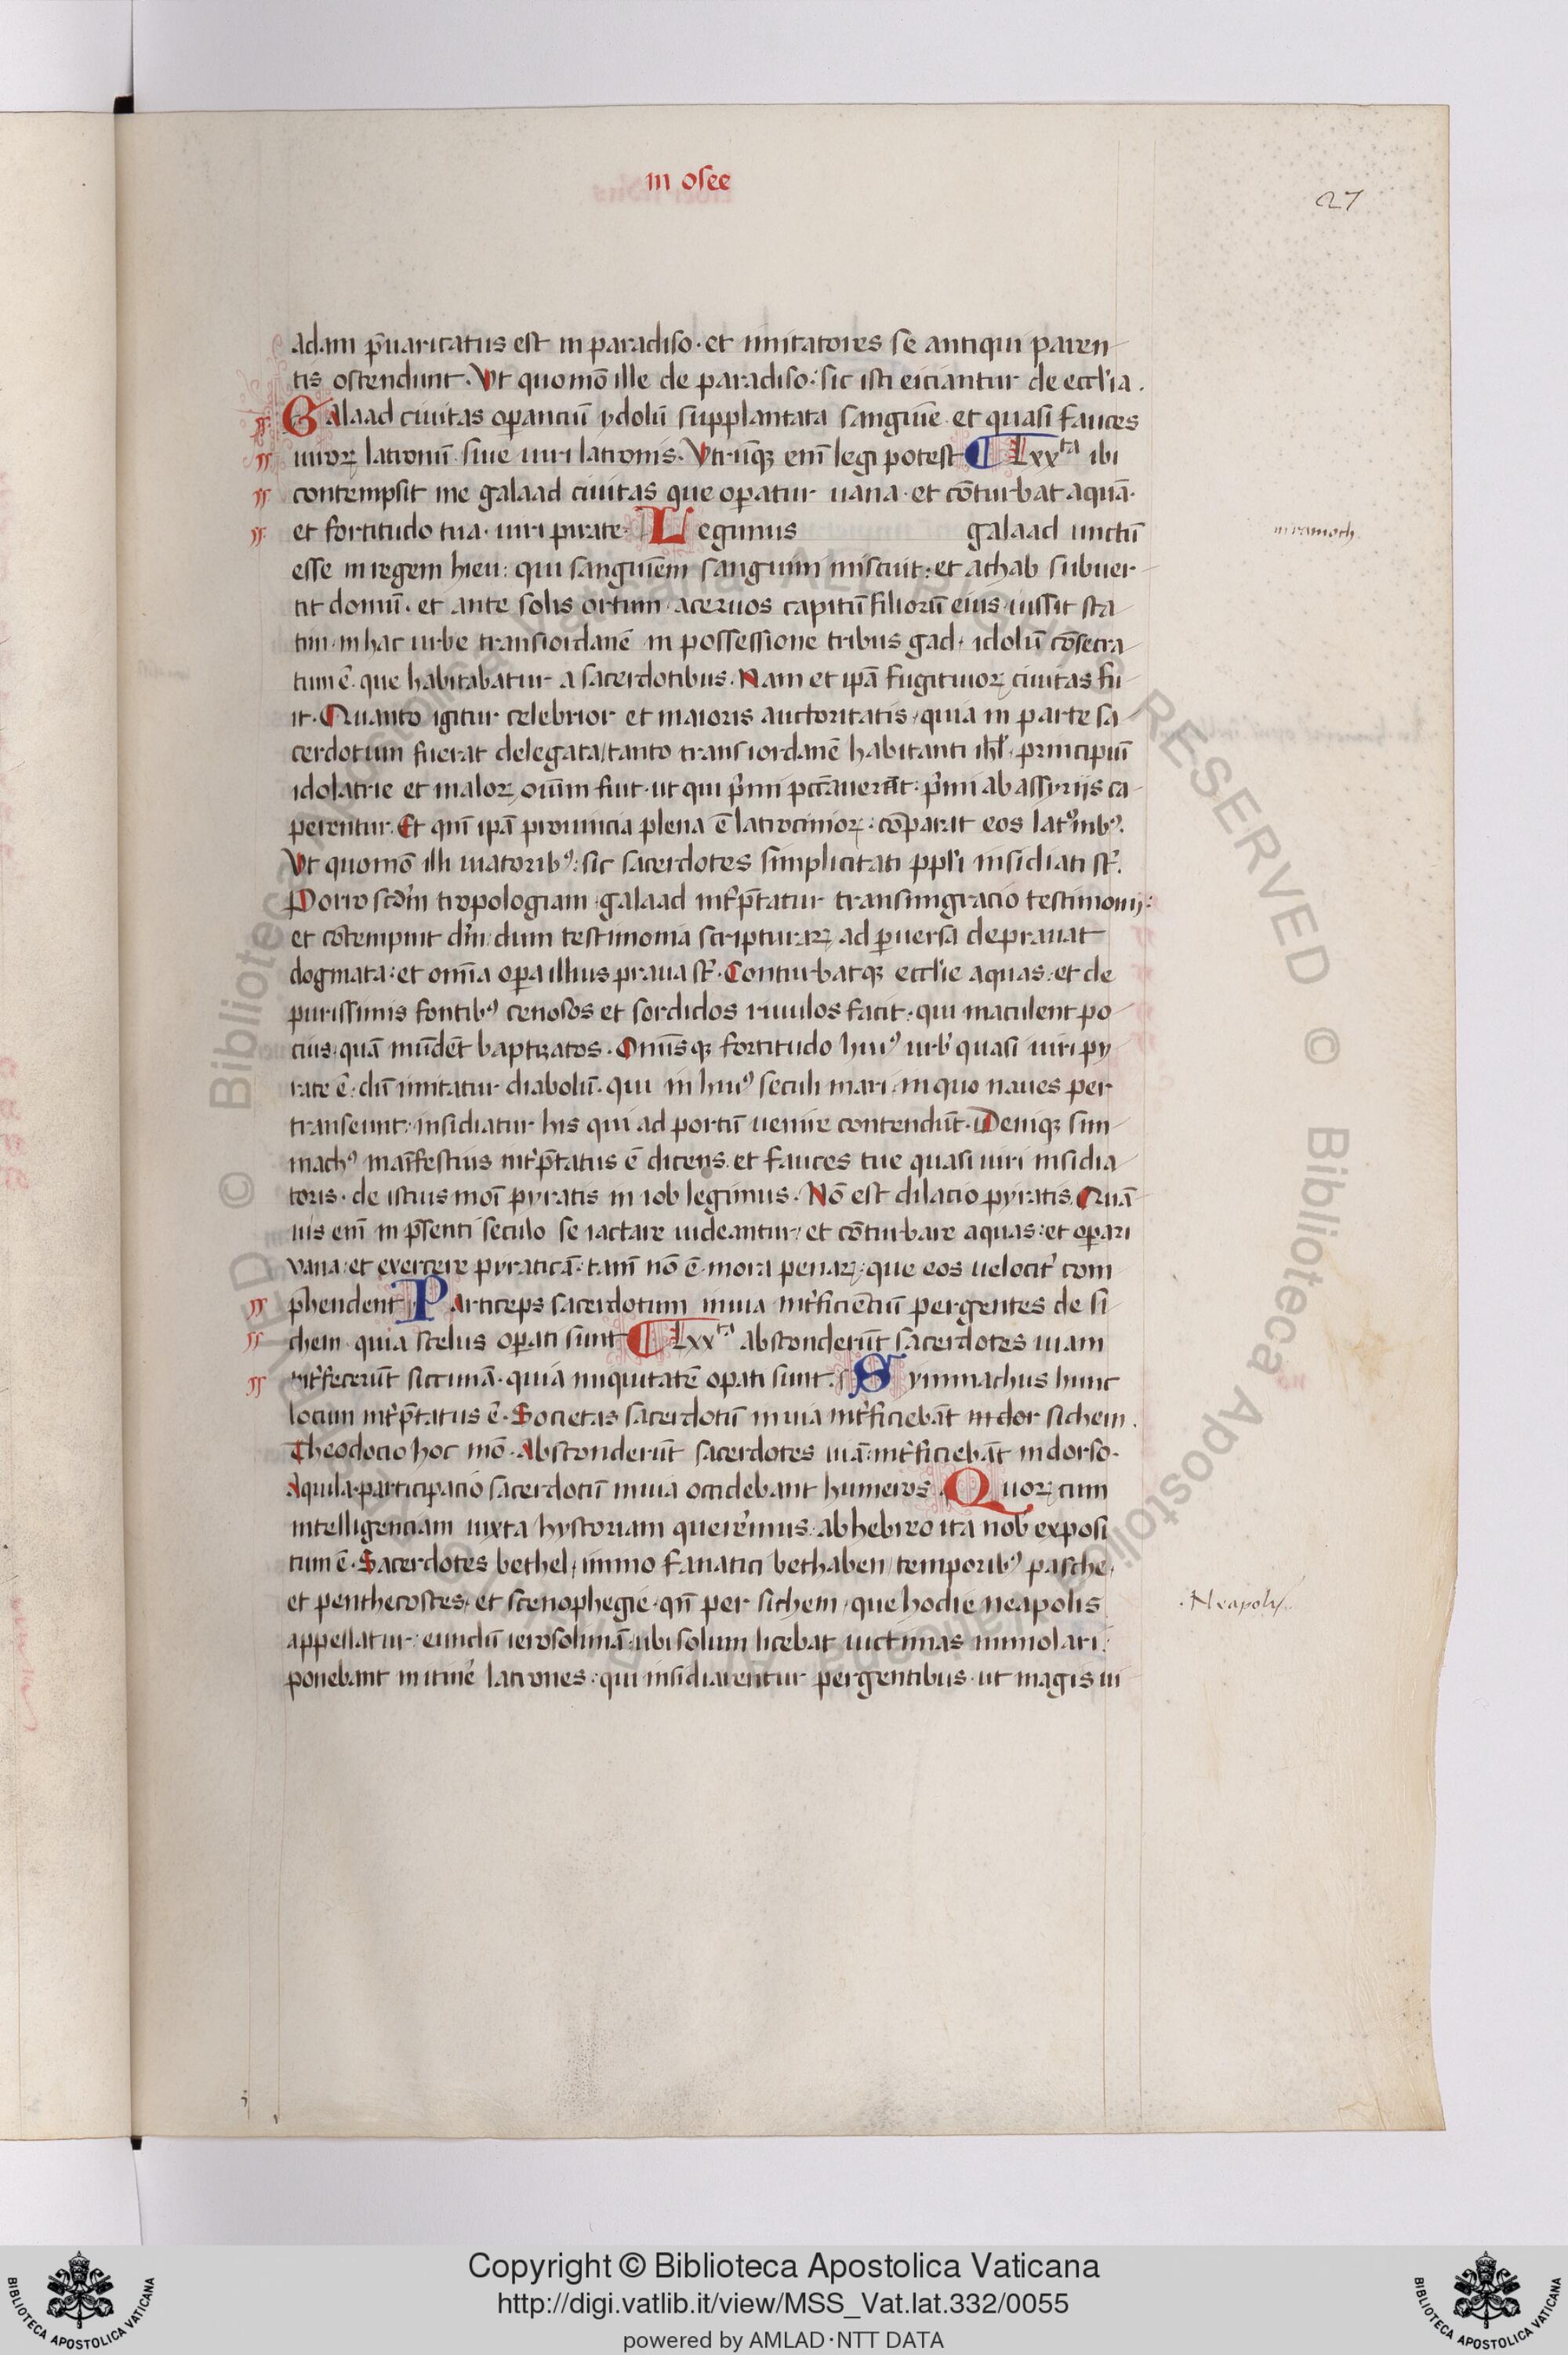 in osee
27
adam p̄uaricatus est in paradiso · et imitatores se antiqui paren-
tis ostendunt · Vt quomō ille de paradiso : sic isti eiciantur de eccl'ia .
Galaad ciuitas oꝑanciū ydolū supplantata sanguīe · et quasi fauces
uiroꝝ latronū · siue uiri latronis · Vtrūqꝫ enī legi potest ¶ Lxxᵗᵃ ibi
contempsit me galaad ciuitas que oꝑatur uana · et cōturbat aquā ·
et fortitudo tua · uiri pirate · Legimus galaad unctū
in ramoth
esse in regem hieu : qui sanguinem sanguini miscuit : et achab subuer-
tit domū · et ante solis ortum · aceruos capitū filiorū eius iussit sta-
tim · in hac urbe transiordanē in possessione tribus gad · idolū cōsecra-
tum ē · que habitabatur a sacerdotibus · Nam et ipā fugitiuoꝝ ciuitas fu-
it · Quanto igitur celebrior et maioris auctoritatis · quia in parte sa-
cerdotum fuerat delegata / tanto transiordanē habitanti isrl' · principiū
idolatrie et maloꝝ oīum fuit · ut qui p'mi peccauerāt : p'mi ab assyrijs ca-
perentur · Et qm̄ ipā prouincia plena ē latrocinioꝝ · cōparat eos latᵒnibꝰ .
Vt quomō illi uiatoribꝰ : sic sacerdotes simplicitati ppl'i insidiati st̄ .
Porro scd'm tropologiam · galaad int'p̄tatur transmigracio testimonij :
et cōtempnit dn̄m dum testimonia scripturaꝝ ad ꝑuersa deprauat
dogmata : et omīa oꝑa illius praua st̄ · Conturbatqꝫ eccl'ie aquas : et de
purissimis fontibꝰ cenosos et sordidos riuulos facit : qui maculent po-
cius · quā mūdēt baptizatos · Omīsqꝫ fortitudo huiꝰ urb' quasi uiri py-
rate ē : dū imitatur diabolū · qui in huiꝰ seculi mari · in quo naues per-
transeunt : insidiatur his qui ad portū uenire contendūt · Deniqꝫ sim-
machꝰ manifestius int'p̄tatus ē dicens · et fauces tue quasi uiri insidia-
toris · de istius moī pyratis in iob legimus · Nō est dilacio pyratis · Quā-
uis enī in p̄senti seculo se iactare uideantur / et cōturbare aquas : et oꝑari
vana : et exercere pyraticā · tamē nō ē mora penaꝝ : que eos uelocit' com-
p̄hendent · Particeps sacerdotum in uia int'ficiēciū pergentes de si-
chem · quia scelus oꝑati sunt ¶ Lxxᵗᵃ absconderūt sacerdotes uiam
int'fecerūt siccimā · quia iniquitatē oꝑati sunt · Symmachus hunc
locum int'p̄tatus ē · Societas sacerdotū in uia int'ficiebāt in dor sichem .
Theodocio hoc mō · Absconderūt sacerdotes uiā : int'ficiebāt in dorso ·
Aquila · participacio sacerdotū in uia occidebant humeros · Quoꝝ cum
intelligenciam iuxta hystoriam quererimus · ab hebreo ita nob' exposi-
tum ē · Sacerdotes bethel / immo fanatici bethaben / temporibꝰ pasche /
et penthecostes / et scenophegie · qn̄ per sichem / que hodie neapolis
· Neapolis
appellatur : eundū ierosolimā · ubi solum licebat uictimas immolari :
ponebant in itinē latrones : qui insidiarentur pergentibus · ut magis ui-
Copyright © Biblioteca Apostolica Vaticana
http://digi.vatlib.it/view/MSS_Vat.lat.332/0055
powered by AMLAD·NTT DATA